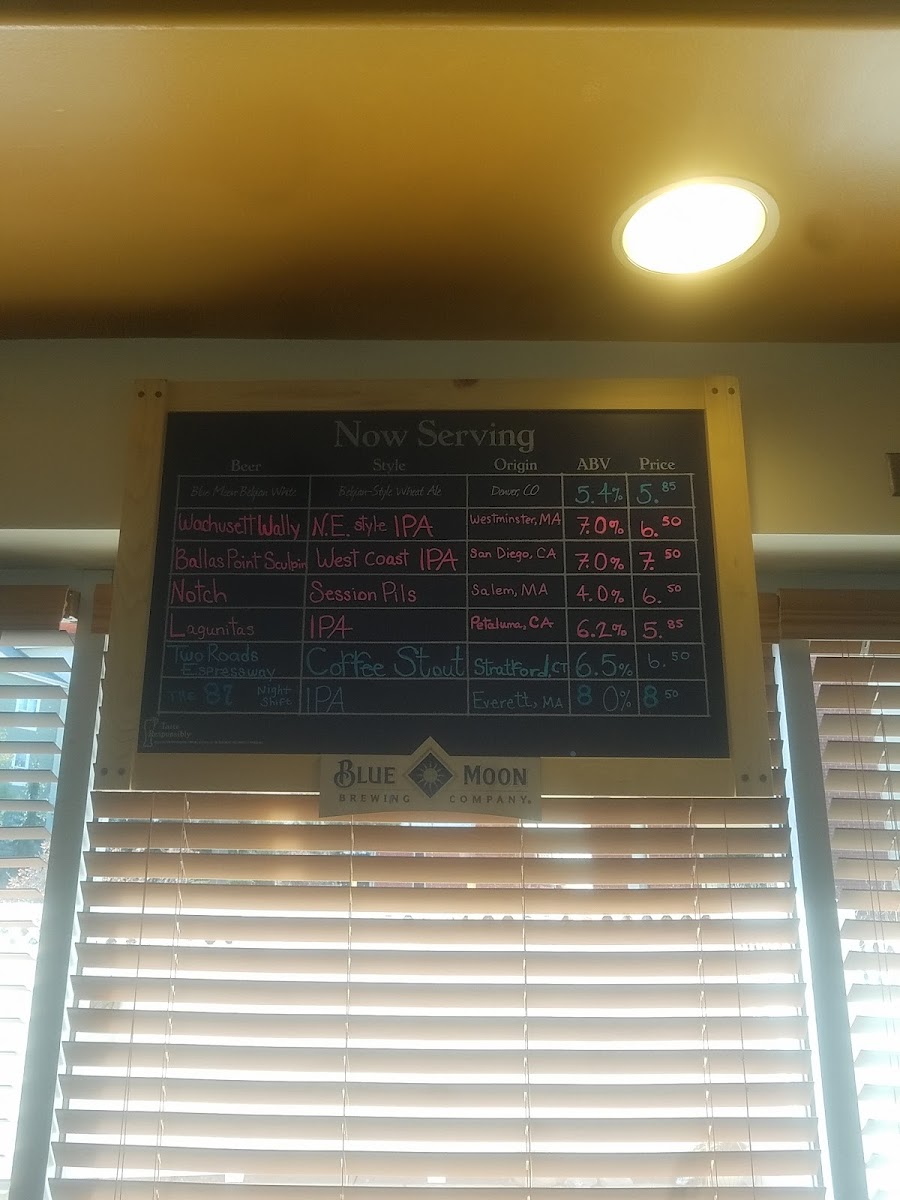 Now Serving
Beer Style Origin ABV Price
Blue Moon Belgian White Belgian-Style Wheat Ale Denver, CO 5.4% 5.85
Wachusett Wally N.E. style IPA Westminster, MA 7.0% 6.50
Ballas Point Sculpin West Coast IPA San Diego, CA 7.0% 7.50
Notch Session Pils Salem, MA 4.0% 6.50
Lagunitas IPA Petaluma, CA 6.2% 5.85
Two Roads
Espressway Coffee Stout Stratford, CT 6.5% 6.50
THE 87 Night
Shift IPA Everett, MA 8.0% 8.50
Taste
Responsibly
BLUE MOON
BREWING COMPANY